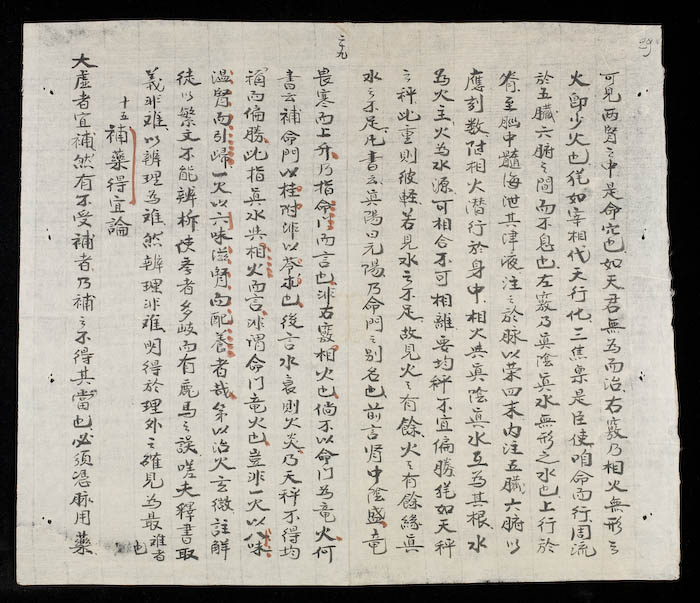 29
二九
可見两腎之中是命宂也如天君無為而治右竅乃相火無形之
火卽少火也犹如宰相代天行化三焦稟是臣使咱命而行周流
於五臓六腑之间而不息也左竅乃眞陰眞水無形之水也上行於
脊至脳中髓海泄其津液注之於脉以荣四末内注五臓六腑以
應刻数附相火潜行於身中相火共眞陰眞水互為其根水
為火主火為水源可相合不可相離要均秤不宜偏勝犹如天秤
之秤此重則彼軽若見水之不足故見火之有餘火之有餘緣眞
水之不足也書云眞陽曰元陽乃命門之别名也前言腎中陰盛竜
畏寒而上升乃指命門而言也非右竅相火也倘不以命門為竜火何
書云補命門以桂附非以苓求也後言水衰則火炎乃天秤不得均
稱而偏勝此指眞水共相火而言非謂命门竜火也豈非一火以八味
温腎而引歸一火以六味滋腎而配養者哉第以治火玄微註解
徒以繁文不能辨柝使孝者多歧而有鹿馬之誤嗟夫釋書取
義非难以辨理為难然辨理非难明得於理外之確見為最难者
也
十五補薬得宜論
大虚者宜補然有不受補者乃補之不得其當也必須憑脉用薬